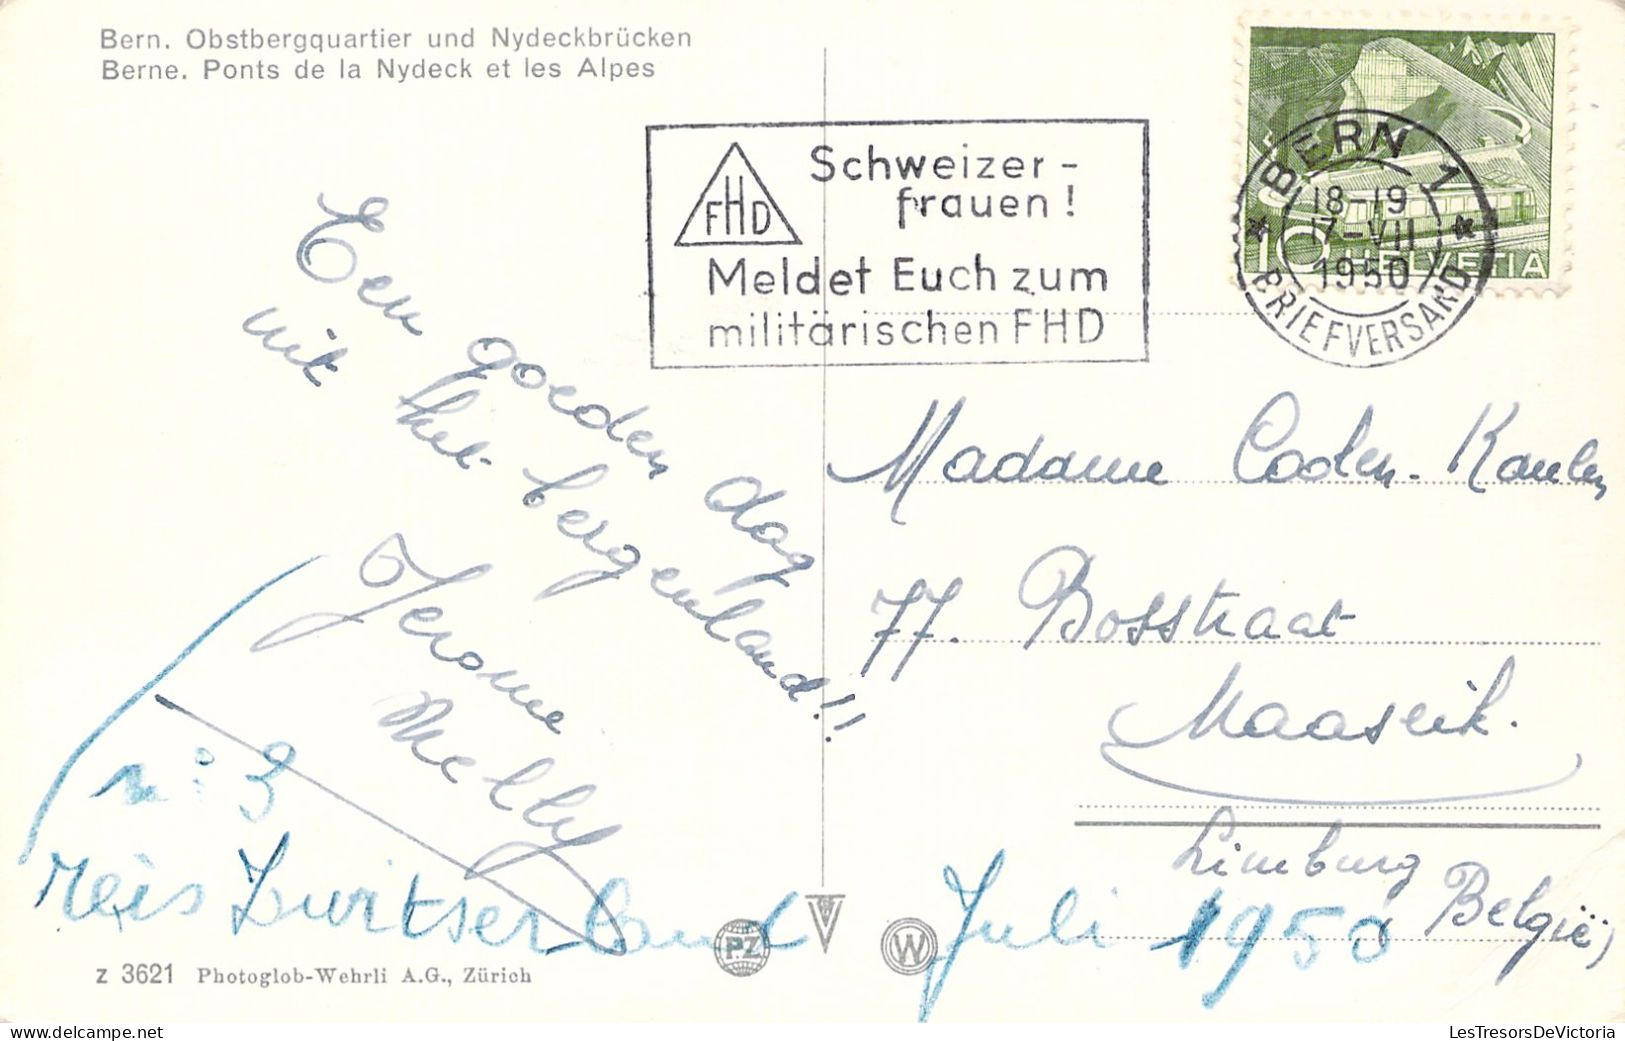 Bern. Obstbergquartier und Nydeckbrücken
Berne. Ponts de la Nydeck et les Alpes
FHD
Schweizer-
frauen!
Meldet Euch zum
militärischen FHD
BERN 1
18-19
17-VII
1950
BRIEFVERSAND
10 HELVETIA
Een goeden dag
uit het bergenland!!
Jerome
Nelly
Madame Coolen-Kaulen
77. Bosstraat
Maaseik.
Limburg
België
n: 3
reis Zwitserland Juli 1950
PZ
W
z 3621 Photoglob-Wehrli A.G., Zürich
LesTresorsDeVictoria